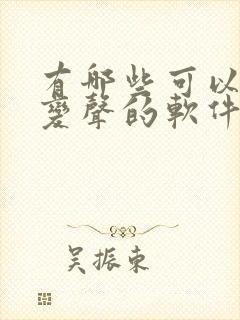 有哪些可以
變聲的軟件
吴振東